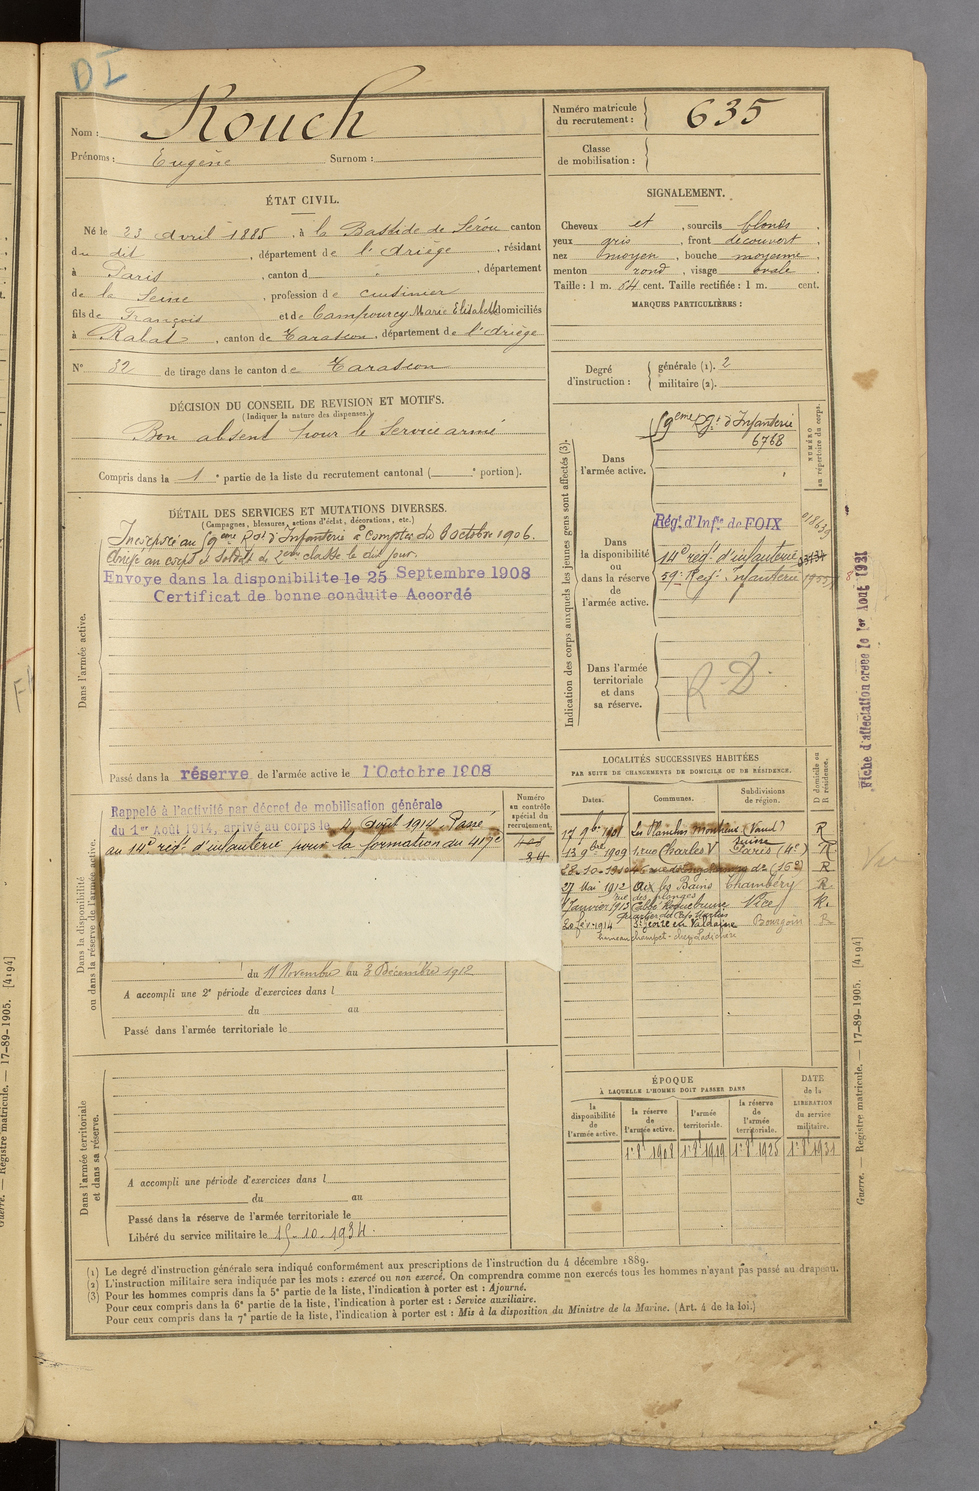 DI
Nom : Rouch
Prénoms : Eugène Surnom :
Numéro matricule du recrutement : 635
Classe de mobilisation :
ÉTAT CIVIL.
Né le 23 avril 1885, à la Bastide de Sérou canton
du dit, département de l'Ariège, résidant
à Paris, canton d , département
de la Seine, profession de cuisinier
fils de François et de Campourcy Marie Elisabeth domiciliés
à Rabat, canton de Tarascon, département de l'Ariège
N° 32 de tirage dans le canton de Tarascon
SIGNALEMENT.
Cheveux et , sourcils blonds ,
yeux gris , front découvert ,
nez moyen , bouche moyenne ,
menton rond , visage ovale .
Taille : 1 m. 64 cent. Taille rectifiée : 1 m. cent.
MARQUES PARTICULIÈRES :
Degré d'instruction :
générale (1). 2
militaire (2).
DÉCISION DU CONSEIL DE REVISION ET MOTIFS.
(Indiquer la nature des dispenses.)
Bon absent pour le Service armé
Compris dans la 1e partie de la liste du recrutement cantonal ( e portion).
DÉTAIL DES SERVICES ET MUTATIONS DIVERSES.
(Campagnes, blessures, actions d'éclat, décorations, etc.)
Dans l'armée active.
Incorporé au 59eme Rgt d'Infanterie à compter du 8 octobre 1906.
Arrivé au corps et Soldat de 2eme classe le dit jour.
Envoye dans la disponibilite le 25 Septembre 1908
Certificat de bonne conduite Accordé
Passé dans la réserve de l'armée active le 1er Octobre 1908
Indication des corps auxquels les jeunes gens sont affectés (3).
NUMÉRO au répertoire du corps.
Dans l'armée active.
59eme Rgt d'Infanterie
6768
Dans la disponibilité ou dans la réserve de l'armée active.
Rég. d'Infie de FOIX
14e régt d'infanterie
59e Reg. Infanterie
Dans l'armée territoriale et dans sa réserve.
R. D.
Fiche d'affectation créée le 1er Août 1931
Dans la disponibilité ou dans la réserve de l'armée active.
Numéro au contrôle spécial du recrutement.
Rappelé à l'activité par décret de mobilisation générale
du 1er Août 1914, arrivé au corps le 4 Août 1914. Passé
au 14e régt d'infanterie pour la formation du 417e
du 11 Novembre au 3 Décembre 1912
A accompli une 2e période d'exercices dans l
du au
Passé dans l'armée territoriale le
LOCALITÉS SUCCESSIVES HABITÉES
PAR SUITE DE CHANGEMENTS DE DOMICILE OU DE RÉSIDENCE.
Dates. Communes. Subdivisions de région. D domicile ou R résidence.
Les Planches Montreux (Vaud) R
Suisse
13 9bre 1909 1 rue Charles V Paris (4e) R
27 Mai 1912 Aix les Bains Chambéry R
Janvier 1913 Roquebrune Nice R.
1914 St Geoire en Valdaine Bourgoin R
Dans l'armée territoriale et dans sa réserve.
A accompli une période d'exercices dans l
du au
Passé dans la réserve de l'armée territoriale le
Libéré du service militaire le 15-10-1934.
ÉPOQUE
À LAQUELLE L'HOMME DOIT PASSER DANS
la disponibilité de l'armée active.
la réserve de l'armée active.
l'armée territoriale.
la réserve de l'armée territoriale.
DATE de la LIBÉRATION du service militaire.
1er 8bre 1908 1er 8bre 1919 1er 8bre 1925 1er 8bre 1931
(1) Le degré d'instruction générale sera indiqué conformément aux prescriptions de l'instruction du 4 décembre 1889.
(2) L'instruction militaire sera indiquée par les mots : exercé ou non exercé. On comprendra comme non exercés tous les hommes n'ayant pas passé au drapeau.
(3) Pour les hommes compris dans la 5e partie de la liste, l'indication à porter est : Ajourné.
Pour ceux compris dans la 6e partie de la liste, l'indication à porter est : Service auxiliaire.
Pour ceux compris dans la 7e partie de la liste, l'indication à porter est : Mis à la disposition du Ministre de la Marine. (Art. 4 de la loi.)
Guerre. — Registre matricule. — 17-89-1905. [4194]
Guerre. — Registre matricule. — 17-89-1905. [4194]